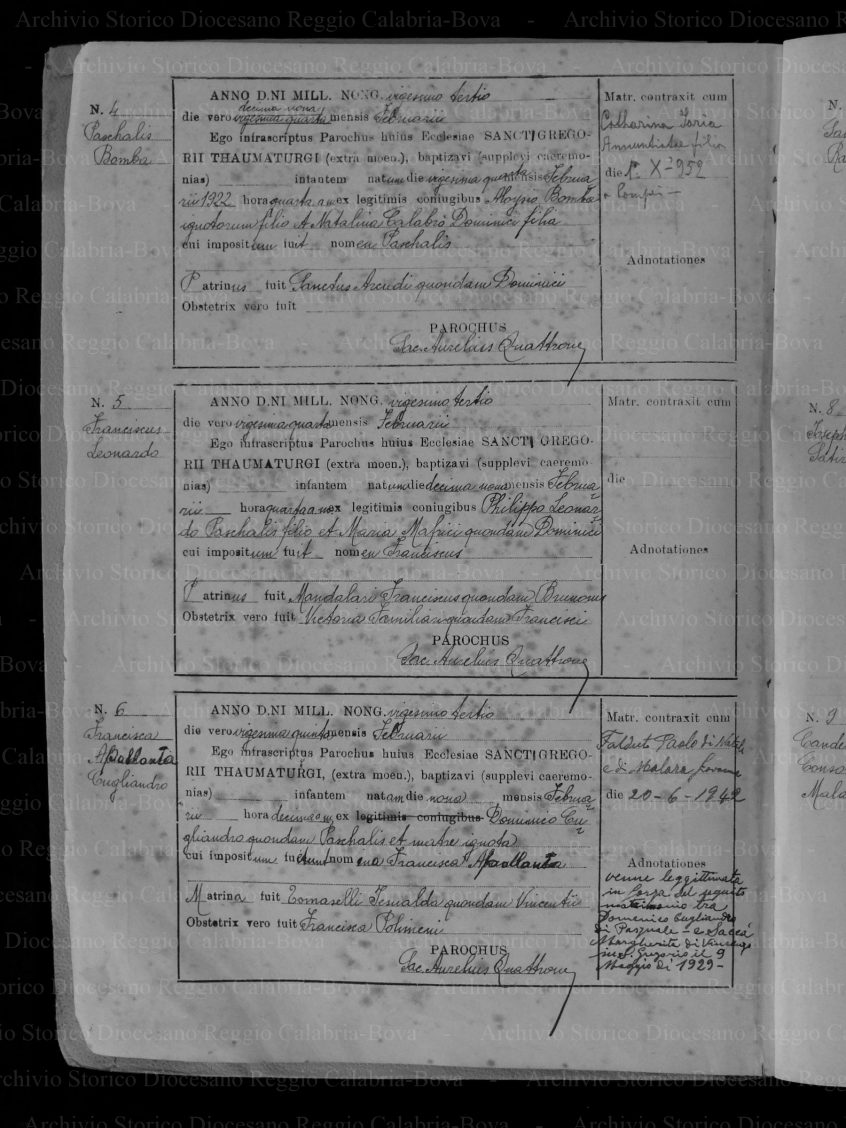 Archivio Storico Diocesano Reggio Calabria-Bova - Archivio Storico Diocesano
N. 4
Paschalis
Bomba
ANNO D.NI MILL. NONG. vigesimo tertio
decima nona
die vero vigesima quarta mensis Februarii
Ego infrascriptus Parochus huius Ecclesiae SANCTI GREGO-
RII THAUMATURGI (extra moen.), baptizavi (supplevi caeremo-
nias) infantem natum die vigesima quarta mensis Februa
rii 1922 hora quarta a m ex legitimis coniugibus Aloysio Bomba
ignotorum filio et Natalina Calabrò Dominici filia
cui impositum fuit nomen Paschalis
Patrinus fuit Sanctus Arcudi quondam Dominici
Obstetrix vero fuit
PAROCHUS
Sac. Aurelius Quattrone
Matr. contraxit cum
Catharina Iaria
Annuntiatae filia
die 1° X-952
a Pompei
Adnotationes
N. 5
Franciscus
Leonardo
ANNO D.NI MILL. NONG. vigesimo tertio
die vero vigesima quarta mensis Februarii
Ego infrascriptus Parochus huius Ecclesiae SANCTI GREGO-
RII THAUMATURGI (extra moen.), baptizavi (supplevi caeremo-
nias) infantem natum die decima nona mensis Februa
rii hora quarta a m ex legitimis coniugibus Philippo Leonar
do Paschalis filio et Maria Mafrici quondam Dominici
cui impositum fuit nomen Franciscus
Patrinus fuit Mandalari Franciscus quondam Brunonis
Obstetrix vero fuit Victoria Familiari quondam Francisci
PAROCHUS
Sac. Aurelius Quattrone
Matr. contraxit cum
die
Adnotationes
N. 6
Francisca
Apollonia
Cugliandro
ANNO D.NI MILL. NONG. vigesimo tertio
die vero vigesima quinta mensis Februarii
Ego infrascriptus Parochus huius Ecclesiae SANCTI GREGO-
RII THAUMATURGI, (extra moen.), baptizavi (supplevi caeremo-
nias) infantem natam die nona mensis Februa
rii hora decima a m ex legitimis coniugibus Dominico Cu
gliandro quondam Paschalis et matre ignota
cui impositum fuit nomina Francisca
Matrina fuit Tomaselli Ismalda quondam Vincentii
Obstetrix vero fuit Francisca Polimeni
PAROCHUS
Sac. Aurelius Quattrone
Matr. contraxit cum
Falduto Paolo di Natale
e di Malara Giovanna
die 20-6-1942
Adnotationes
venne legittimata
in forza del seguito
matrimonio tra
Domenico Cugliandro
di Pasquale - e Saccà
Margherita di Vincenzo
in S. Gregorio il 9
Maggio di 1929-
N. 8
N. 9